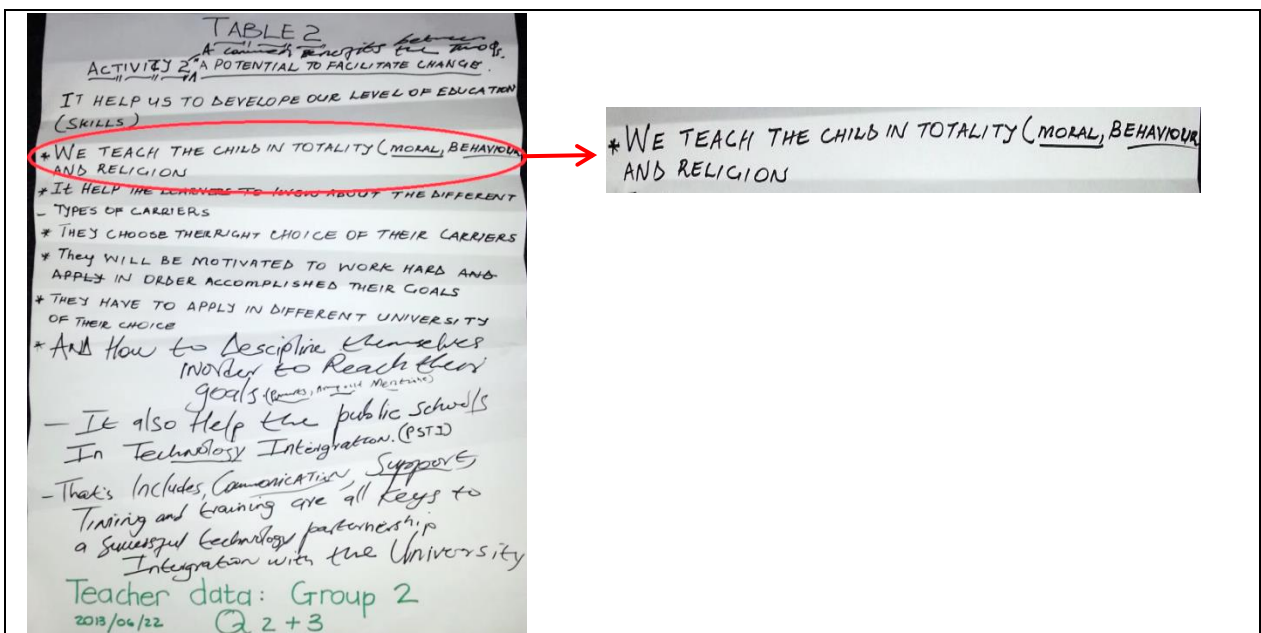 TABLE 2
A common between the two
ACTIVITY 2 A POTENTIAL TO FACILITATE CHANGE.
IT HELP US TO DEVELOPE OUR LEVEL OF EDUCATION
(SKILLS)
* WE TEACH THE CHILD IN TOTALITY (MORAL, BEHAVIOUR
AND RELIGION
* It HELP THE LEARNERS TO KNOW ABOUT THE DIFFERENT
- TYPES OF CARRIERS
* THEY CHOOSE THERRIGHT CHOICE OF THEIR CARRIERS
* They WILL BE MOTIVATED TO WORK HARD AND
APPLY IN ORDER ACCOMPLISHED THEIR GOALS
* THEY HAVE TO APPLY IN DIFFERENT UNIVERSITY
OF THEIR CHOICE
* AND How to Descipline themselves
inorder to Reach their
goals
- It also Help the public schools
In Technology Intergration. (PSTI)
- That's Includes, Communication, Support,
Timing and training are all keys to
a successful technology parternership
Intergration with the University
Teacher data: Group 2
2013/06/22 Q 2 + 3
* WE TEACH THE CHILD IN TOTALITY (MORAL, BEHAVIOUR
AND RELIGION